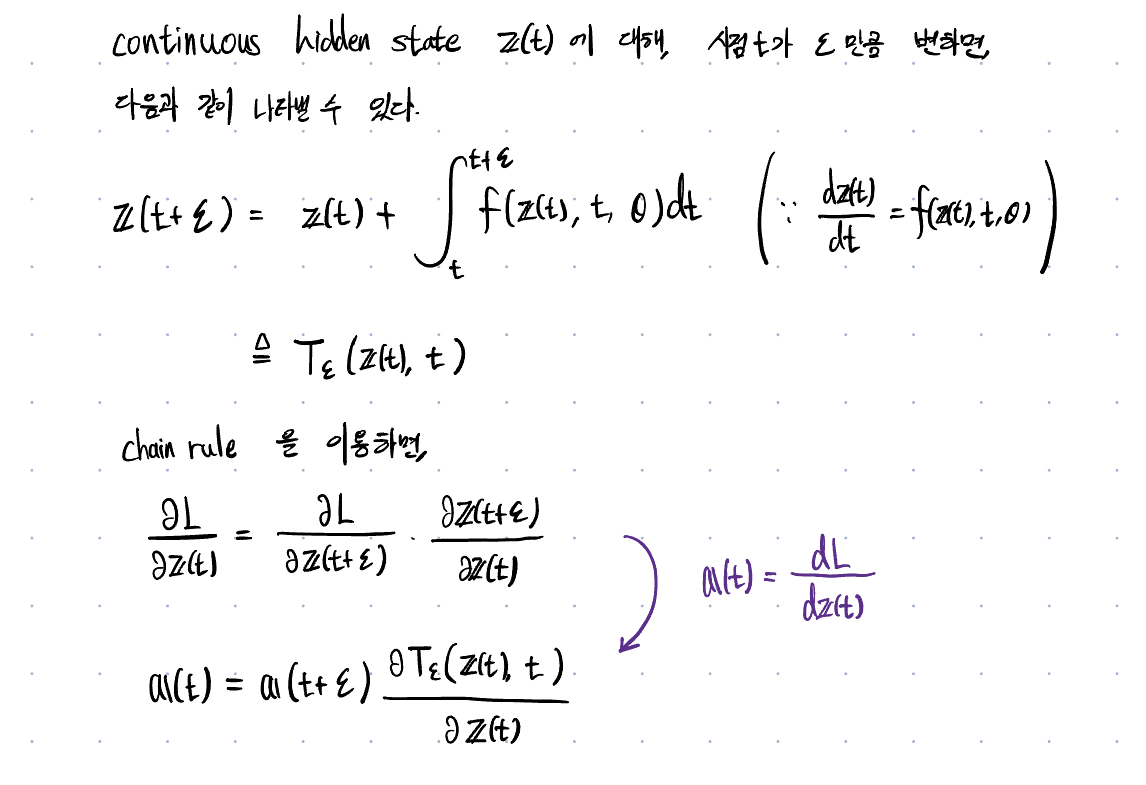 continuous hidden state z(t)에 대해, 시점 t가 ε만큼 변하면,
다음과 같이 나타낼 수 있다.
z(t+ε) = z(t) + ∫_t^{t+ε} f(z(t), t, θ)dt (∵ dz(t)/dt = f(z(t), t, θ))
≜ T_ε(z(t), t)
chain rule 을 이용하면,
∂L/∂z(t) = ∂L/∂z(t+ε) · ∂z(t+ε)/∂z(t)
a(t) = dL/dz(t)
a(t) = a(t+ε) ∂T_ε(z(t), t)/∂z(t)